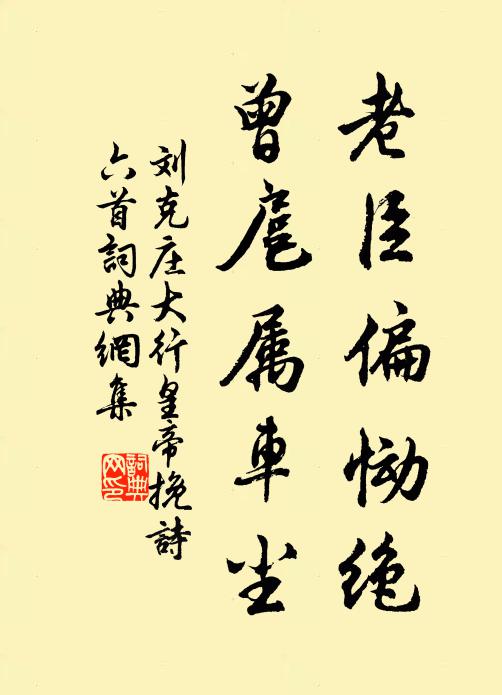 老臣偏恸绝
曾扈属車尘
刘克庄大行皇帝挽詩
六首詞典網集
詞典
网印